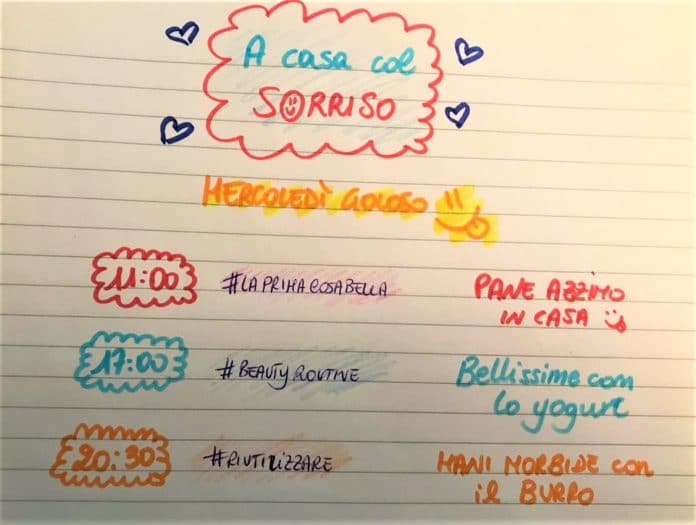 A casa col
SORRISO
MERCOLEDÌ GOLOSO
11:00 #LAPRIMACOSABELLA PANE AZZIMO
IN CASA
17:00 #BEAUTYROUTINE Bellissime con
lo yogurt
20:30 #RIUTILIZZARE MANI MORBIDE con
il BURRO